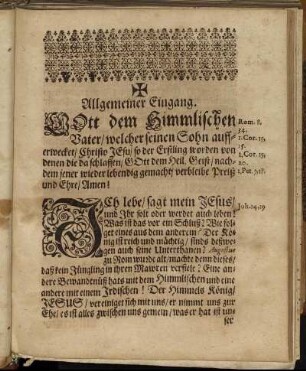 Allgemeiner Eingang.
GOtt dem Himmlischen
Vater/ welcher seinen Sohn auff-
erwecket/ Christo JEsu/ so der Erstling worden von
denen die da schlaffen/ GOtt dem Heil. Geist/ nach-
dem jener wieder lebendig gemacht/ verbleibe Preiß
und Ehre/ Amen!
Rom. 8,
14.
1. Cor. 15,
1. Cor. 15,
20.
1. Pet. 3, 18.
ICh lebe/ sagt mein JEsus/
und Ihr solt oder werdet auch leben!
Was ist das vor ein Schluß? Wie fol-
get eines aus dem andern? Der Kö-
nig ist reich und mächtig/ sinds deßwe-
gen auch seine Unterthanen? Augustus
zu Rom wurde alt/ machte denn dieses/
daß kein Jüngling in ihren Mauren verfiele? Eine an-
dere Bewandtnüß hats mit dem Himmlischen und eine
andere mit einem Irdischen! Der Himmels König/
JESUS/ vereiniget sich mit uns/ er nimmt uns zur
Ehe/ es ist alles zwischen uns gemein/ was er hat ist un-
ser
Joh. 14, 19.